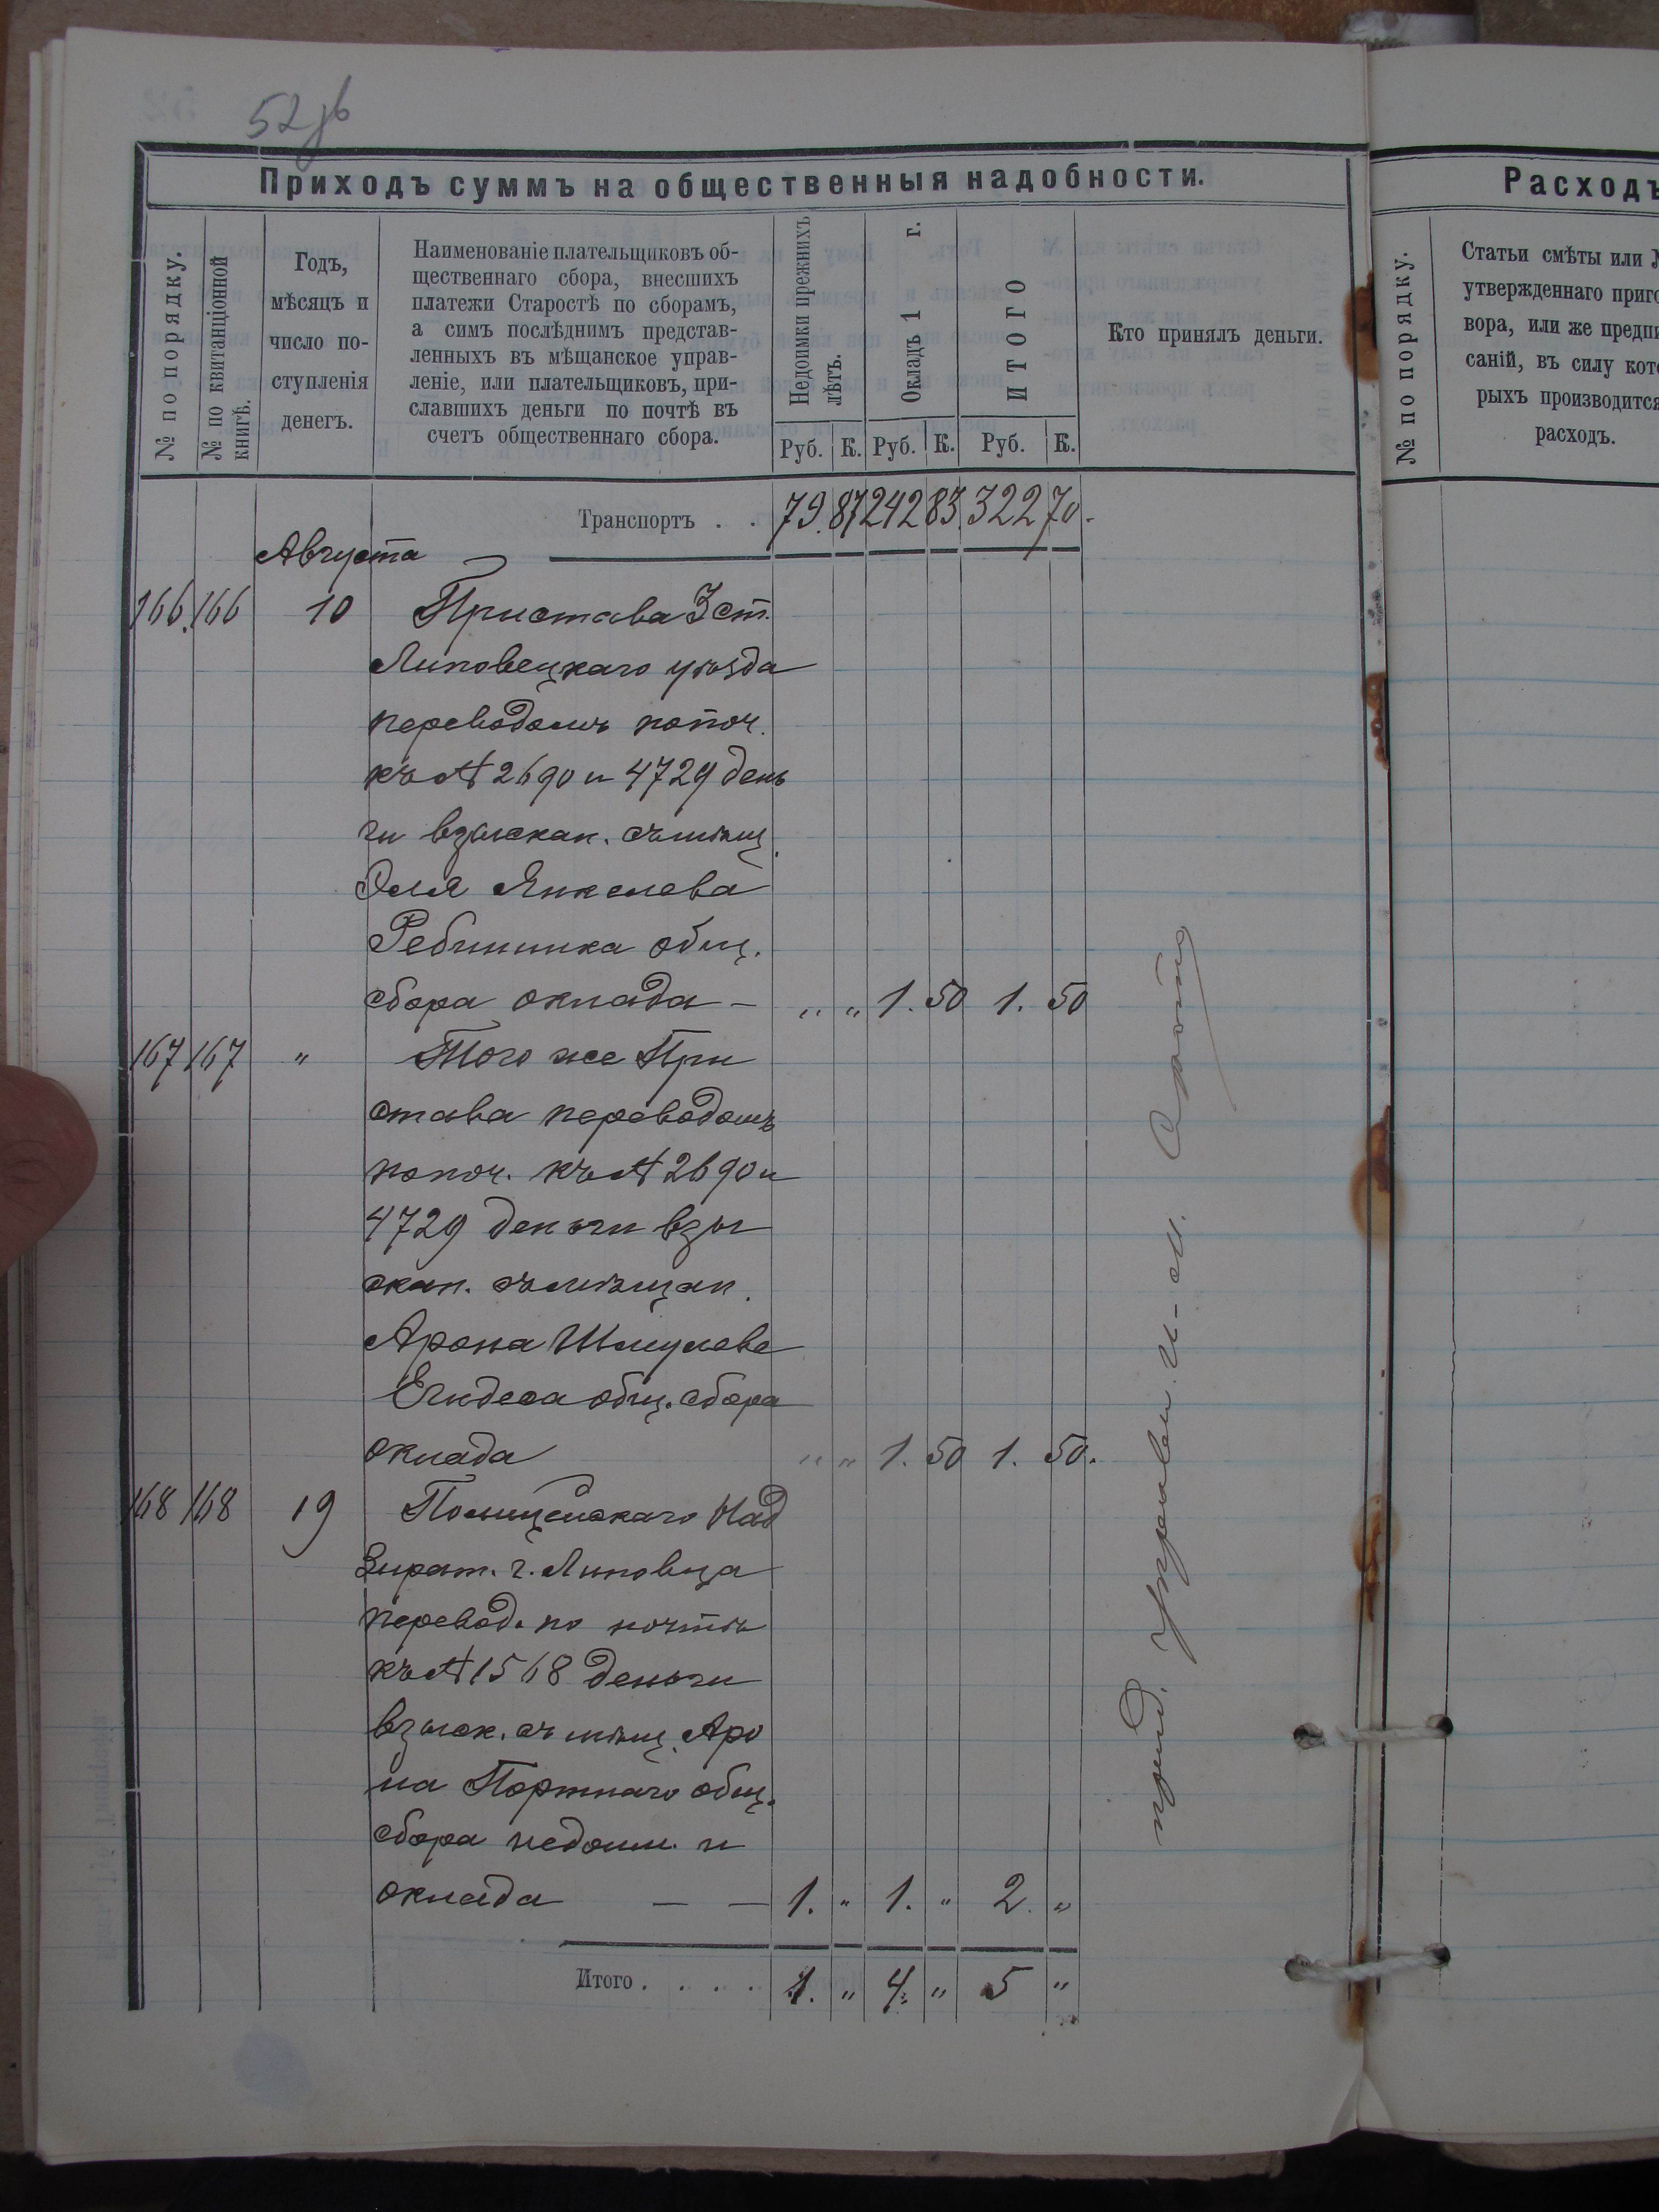 52 зв
Приходъ суммъ на общественныя надобности.
№ по порядку.
№ по квитанціонной книгѣ.
Годъ,
мѣсяцъ и
число по-
ступленія
денегъ.
Наименованіе плательщиковъ об-
щественнаго сбора, внесшихъ
платежи Старостѣ по сборамъ,
а симъ послѣднимъ представ-
ленныхъ въ мѣщанское управ-
леніе, или плательщиковъ, при-
славшихъ деньги по почтѣ въ
счетъ общественнаго сбора.
Недоимки прежнихъ лѣтъ.
Окладъ 1 г.
ИТОГО
Руб. К. Руб. К. Руб. К.
Кто принялъ деньги.
Транспортъ . . 79. 87 242 83. 322 70.
Августа
166. 166 10 Пристава 3 ст.
Липовецкаго уѣзда
переводомъ по поч.
къ № 2690 и 4729 день
ги взыскан. съ мѣщ.
Эля Янкелева
общ.
сбора оклада — „ „ 1. 50 1. 50
167 167 „ Того же При
става переводомъ
по поч. къ № 2690 и
4729 деньги взы
скан. съ мѣщан.
Арона Шмулева
общ. сбора
оклада „ „ 1. 50 1. 50.
168 168 19 Полицейскаго Над
зират. г. Липовца
перевод. по почтѣ
къ № 1568 деньги
взыск. съ мѣщ. Аро
на Портнаго общ.
сбора недоим. и
оклада — — 1. „ 1. „ 2. „
Итого . . . . 1. „ 4. „ 5 „
Расходъ
№ по порядку.
Статьи смѣты или №
утвержденнаго приго
вора, или же предпи
саній, въ силу кото
рыхъ производится
расходъ.